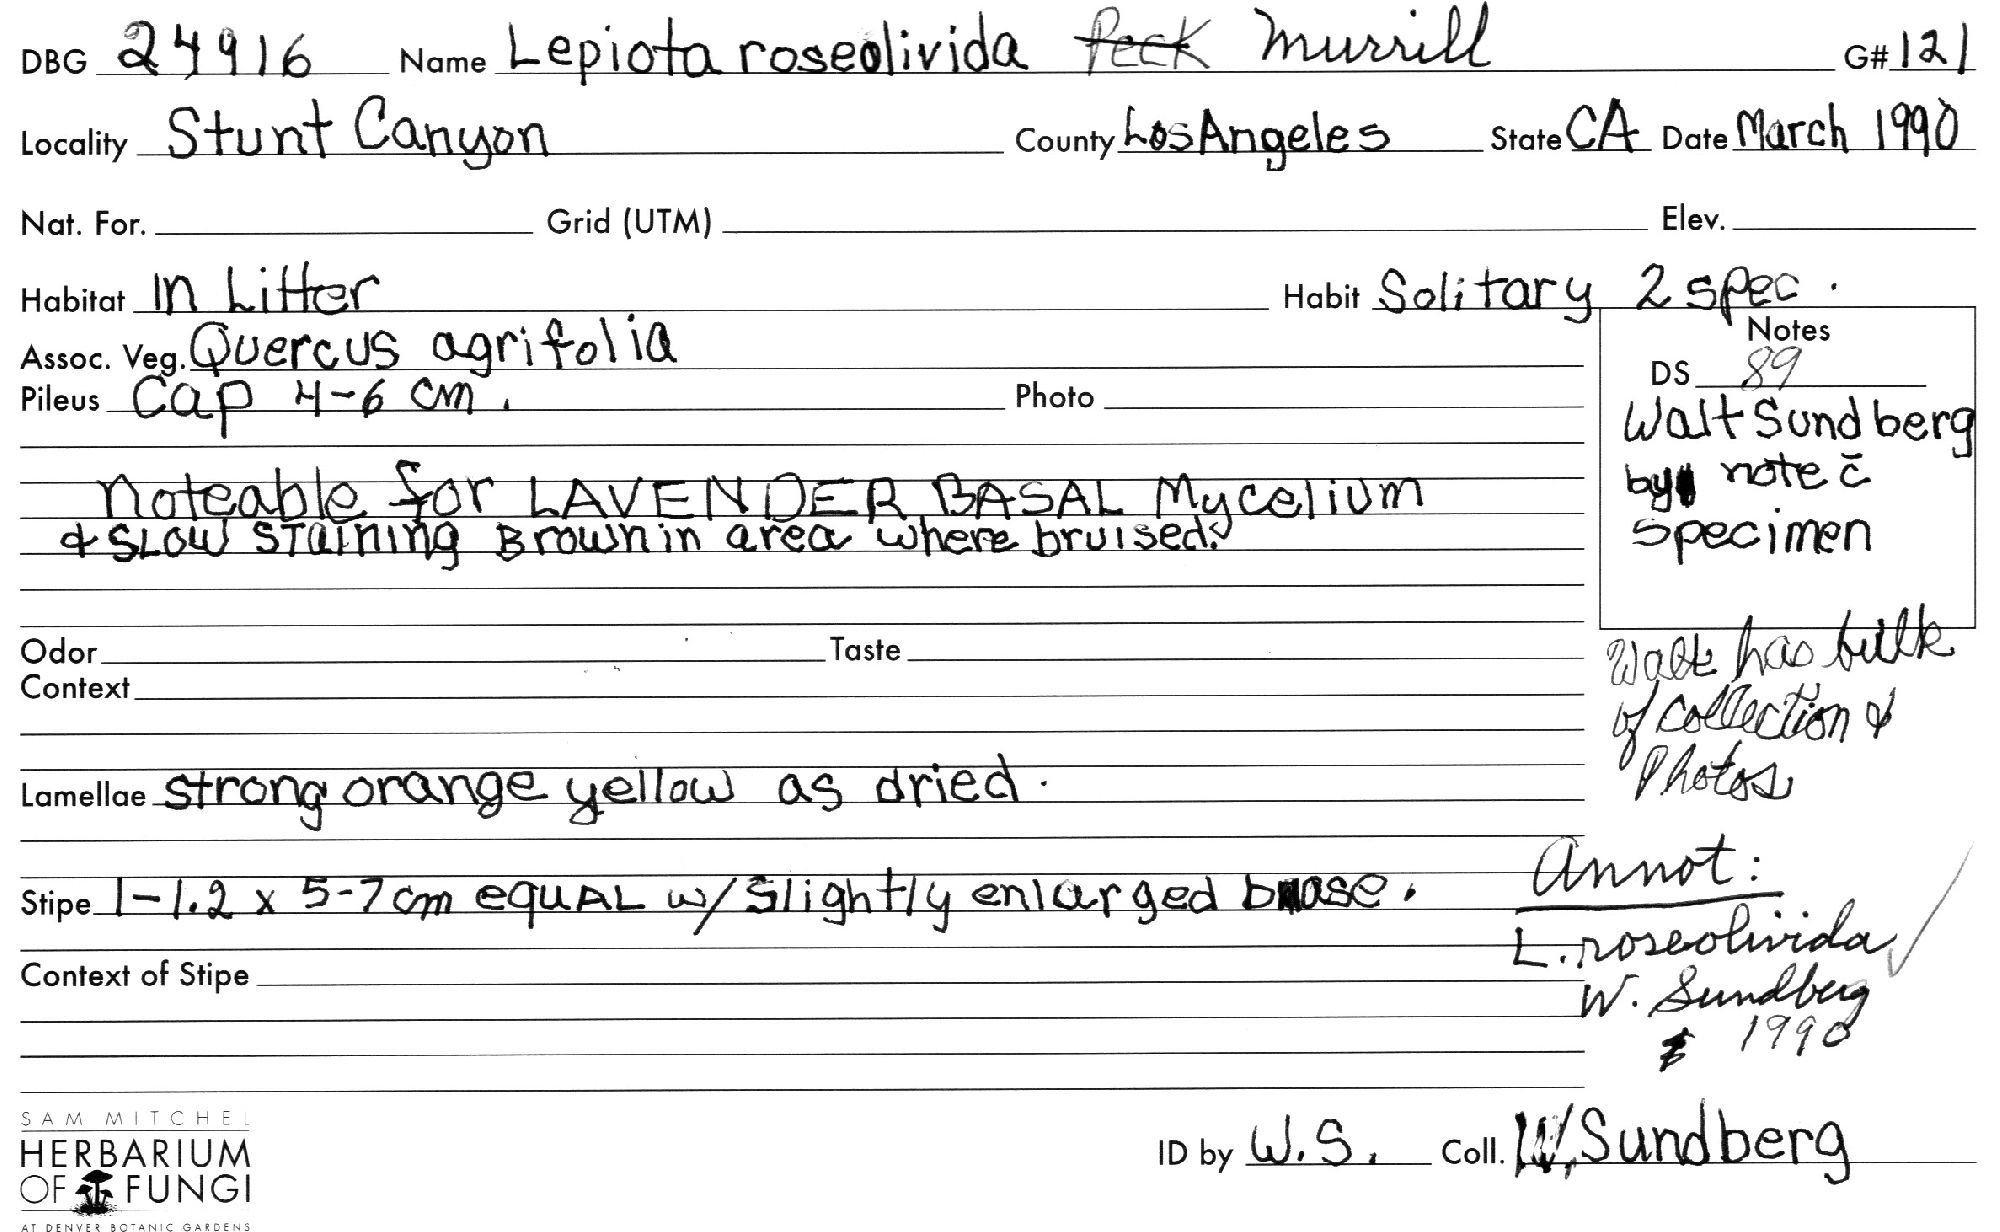 DBG 24916 Name Lepiota roseolivida Peck Murrill G# 121
Locality Stunt Canyon County Los Angeles State CA Date March 1990
Nat. For. Grid (UTM) Elev.
Habitat In Litter Habit Solitary 2 spec.
Assoc. Veg. Quercus agrifolia
Pileus Cap 4-6 cm. Photo
Noteable for LAVENDER BASAL Mycelium
& SLOW STAINING Brown in area where bruised.
Notes
DS 89
Walt Sundberg
by note c̄
specimen
Walt has bulk
of collection &
Photos
Odor Taste
Context
Lamellae strong orange yellow as dried.
Stipe 1-1.2 x 5-7 cm equAL w/ slightly enlarged base.
Context of Stipe
Annot:
L. roseolivida ✓
W. Sundberg
1990
ID by W.S. Coll. W. Sundberg
SAM MITCHEL
HERBARIUM
OF FUNGI
AT DENVER BOTANIC GARDENS